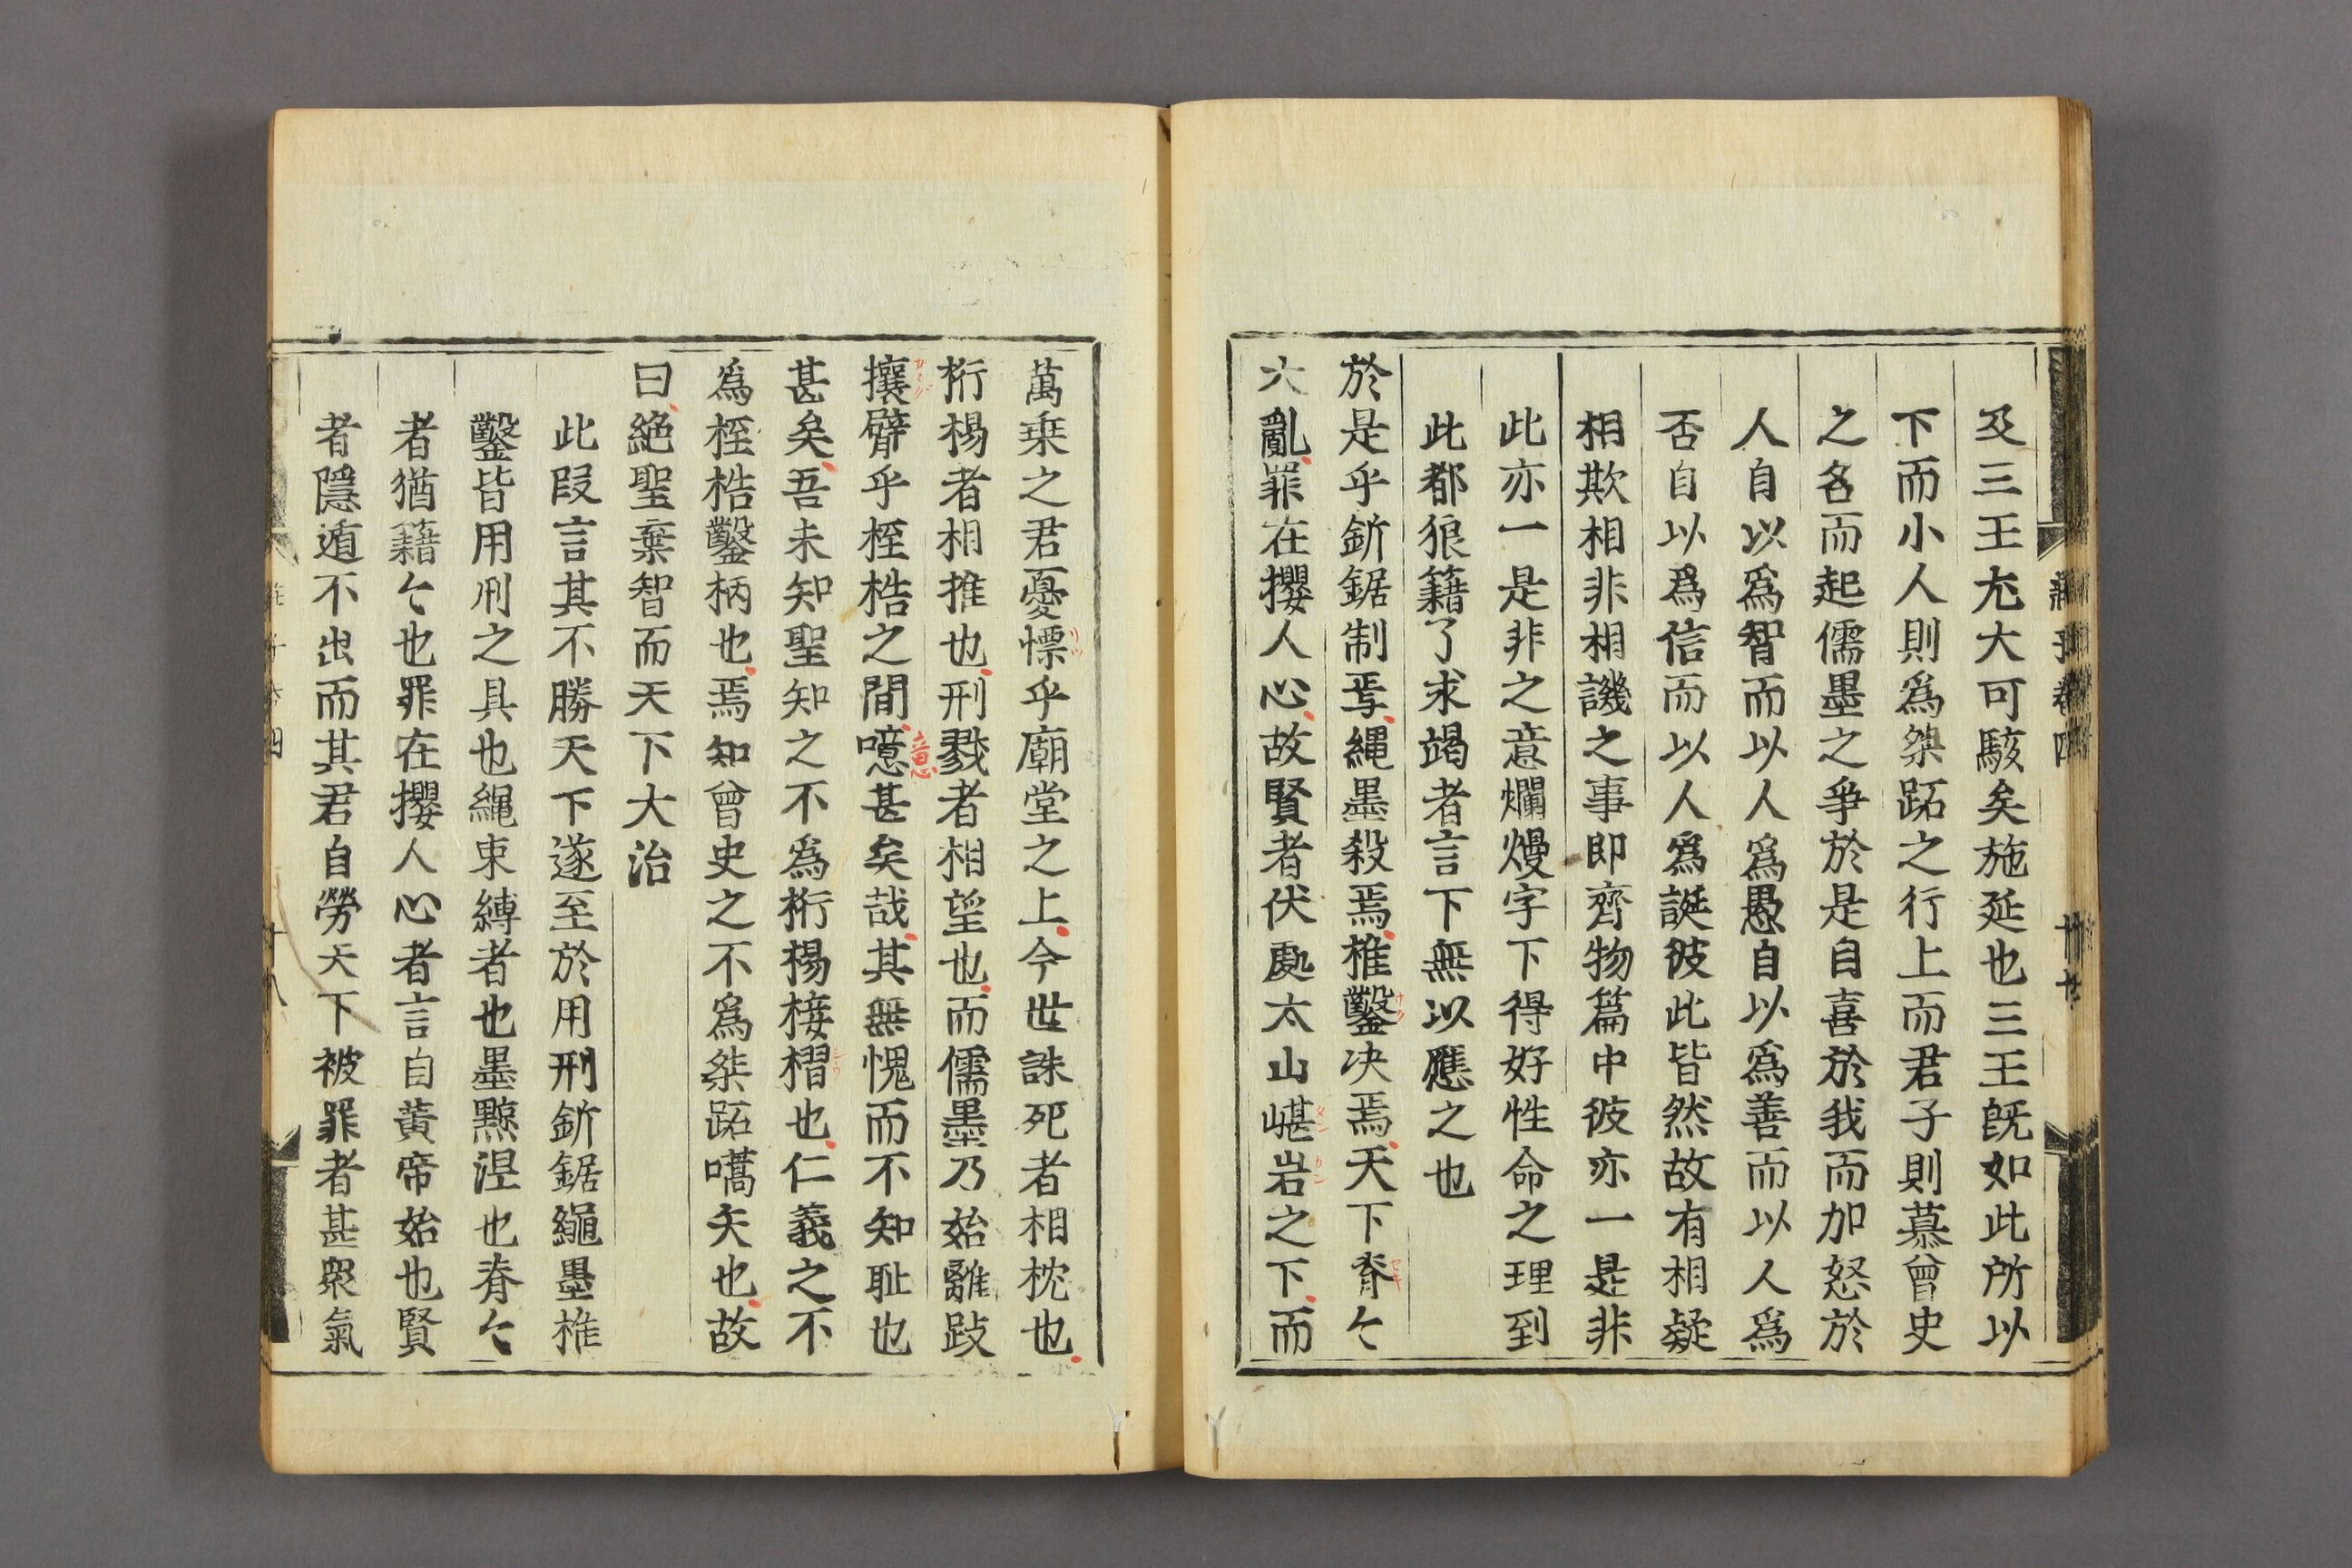 及三王尢大可駭矣施延也三王旣如此所以
下而小人則爲桀跖之行上而君子則慕曾史
之名而起儒墨之爭於是自喜於我而加怒於
人自以爲智而以人爲愚自以爲善而以人爲
否自以爲信而以人爲誕彼此皆然故有相疑
相欺相非相譏之事即齊物篇中彼亦一是非
此亦一是非之意爛熳字下得好性命之理到
此都狼籍了求竭者言下無以應之也
於是乎釿鋸制焉繩墨殺焉椎鑿决焉天下脊〻
大亂罪在攖人心故賢者伏處太山嵁岩之下而
萬乗之君憂慄乎廟堂之上今世誅死者相枕也
桁楊者相推也刑戮者相望也而儒墨乃始離跂
攘臂乎桎梏之間噫甚矣哉其無愧而不知耻也
甚矣吾未知聖知之不爲桁楊椄槢也仁義之不
爲桎梏鑿枘也焉知曾史之不爲桀跖嚆矢也故
曰絶聖棄智而天下大治
此段言其不勝天下遂至於用刑釿鋸繩墨椎
鑿皆用刑之具也繩束縛者也墨黥涅也脊〻
者猶籍〻也罪在攖人心者言自黃帝始也賢
者隱遁不出而其君自勞天下被罪者甚衆氣